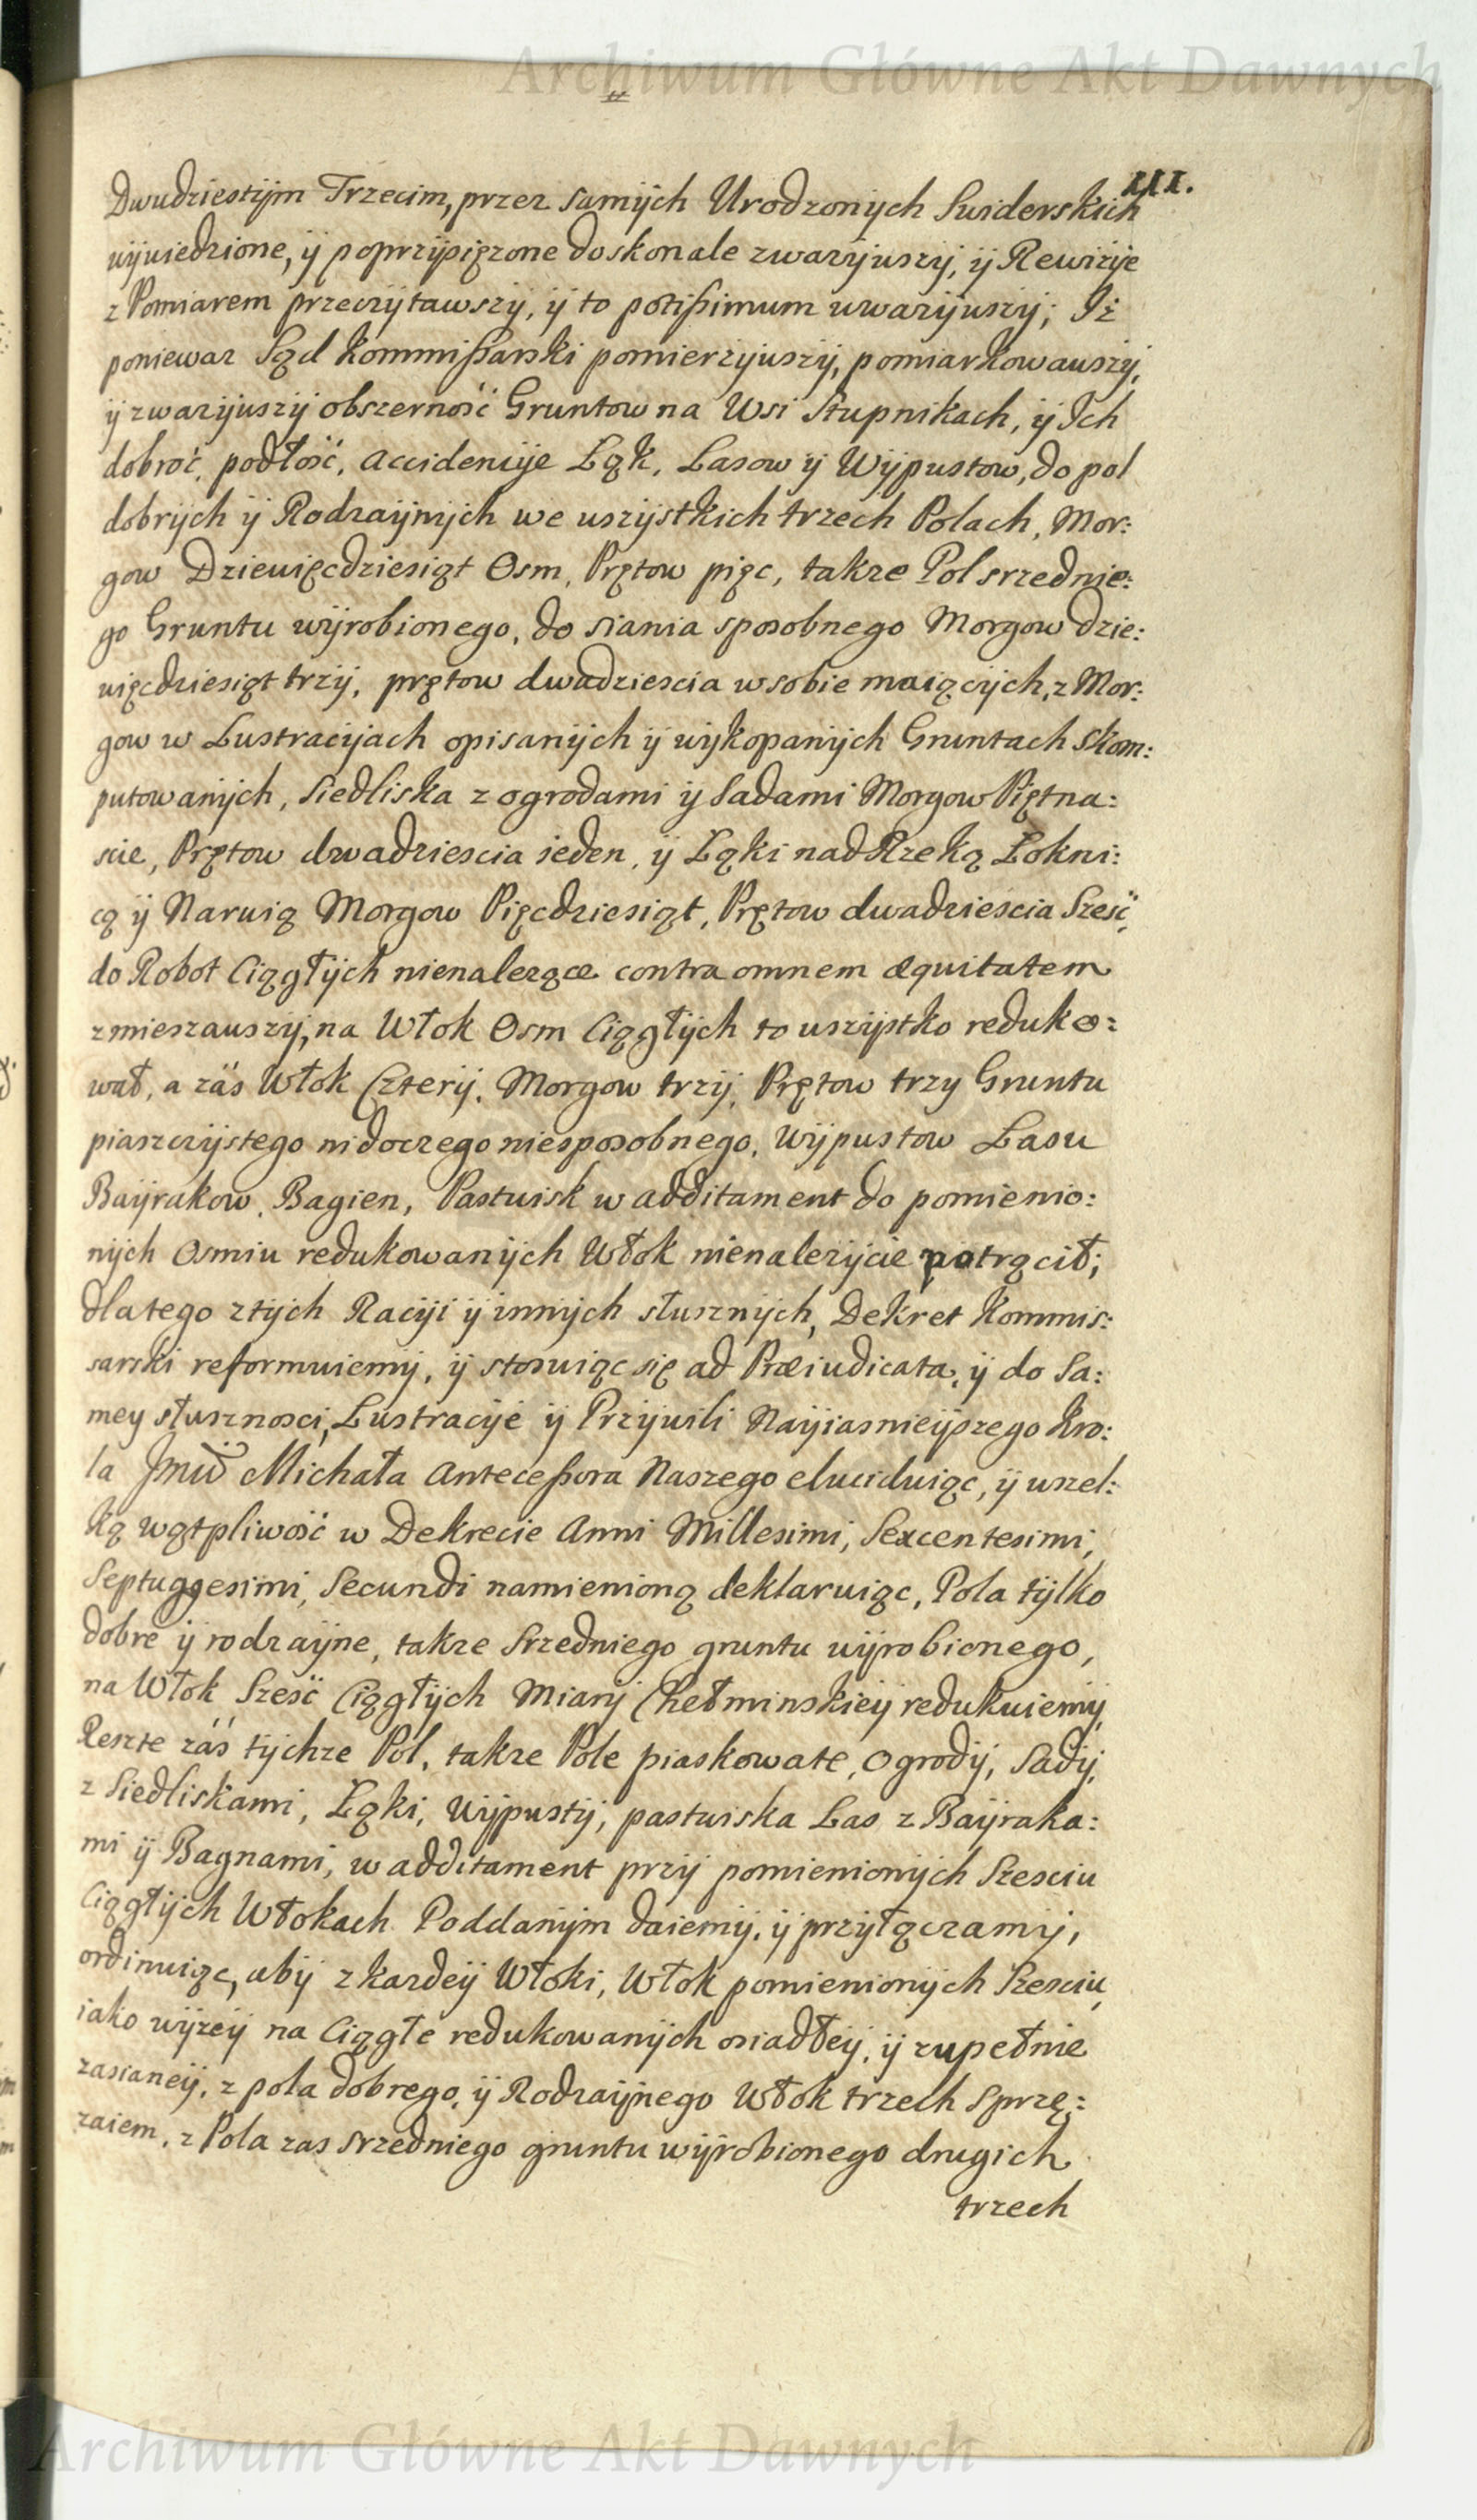 Archiwum Główne Akt Dawnych
111.
Dwudziestijm Trzecim, przez samijch Urodzonijch Swiderskich
wijwiedzione, ij poprzijsięzone doskonale zwazijwszij, ij Rewizije
z Pomiarem przeczijtawszij, ij to potißimum uwazijwszij; Iż
poniewaz Sąd Kommißarski pomierzijwszij, pomiarkowawszij,
ij zwazijwszij obszerność Gruntow na Wsi Stupnikach, ij Ich
dobroć, podłość, accidencije Łąk, Lasow ij Wijpustow, do pol
dobrijch ij Rodzaijnijch we wszijstkich trzech Polach, Mor:
gow Dziewięcdziesiąt Osm, Prętow pięc, takze Pol srzednie:
go Gruntu wijrobionego, do siania sposobnego Morgow dzie:
więcdziesiąt trzij, prętow dwadziescia w sobie maiącijch, z Mor:
gow w Lustracijach opisanijch ij wijkopanijch Gruntach skom:
putowanijch, Siedliska z ogrodami ij Sadami Morgow Piętna:
scie, Prętow dwadziescia ieden, ij Łąki nad Rzeką Łokni:
cą ij Narwią Morgow Pięcdziesiąt, Prętow dwadziescia Sześć,
do Robot Ciągłijch nienalezące contra omnem æquitatem
zmieszawszij, na Włok Osm Ciągłijch to wszijstko reduko:
wał, a záś Włok Czterij, Morgow trzij, Prętow trzy Gruntu
piaszczijstego nidoczego niesposobnego, Wijpustow Lasu
Baijrakow, Bagien, Pastwisk w additament do pomienio:
nijch Osmiu redukowanijch Włok nienalezijcie potrącił;
dlatego z tijch Raciji ij innijch słusznijch, Dekret Kommis:
sarski reformuiemij, ij stosuiąc się ad Præiudicata, ij do Sa:
mey słusznosci, Lustracije ij Przijwili Naijiasnieijszego Kro:
la Jmći Michała Anteceßora Naszego eluciduiąc, ij wszel:
ką wątpliwość w Dekrecie Anni Millesimi, Sexcentesimi,
Septuagesimi, Secundi namienioną deklaruiąc, Pola tijlko
dobre ij rodzaijne, takze Srzedniego gruntu wijrobionego,
na Włok Sześć Ciągłijch Miarij Chełminskieij redukuiemij,
Reszte záś tijchze Pol, takze Pole piaskowate, Ogrodij, Sadij,
z Siedliskami, Łąki, Wijpustij, pastwiska Las z Baijraka:
mi ij Bagnami, w additament przij pomienionijch Szesciu
Ciągłijch Włokach Poddanijm daiemij, ij przijłączamij,
ordinuiąc, abij z kazdeij Włoki, Włok pomienionijch Szesciu,
iako wijzeij na Ciągłe redukowanijch osiadłeij, ij zupełnie
zasianeij, z pola dobrego, ij Rodzaijnego Włok trzech Sprzę:
zaiem, z Pola zas srzedniego gruntu wijrobionego drugich
trzech
Archiwum Główne Akt Dawnych